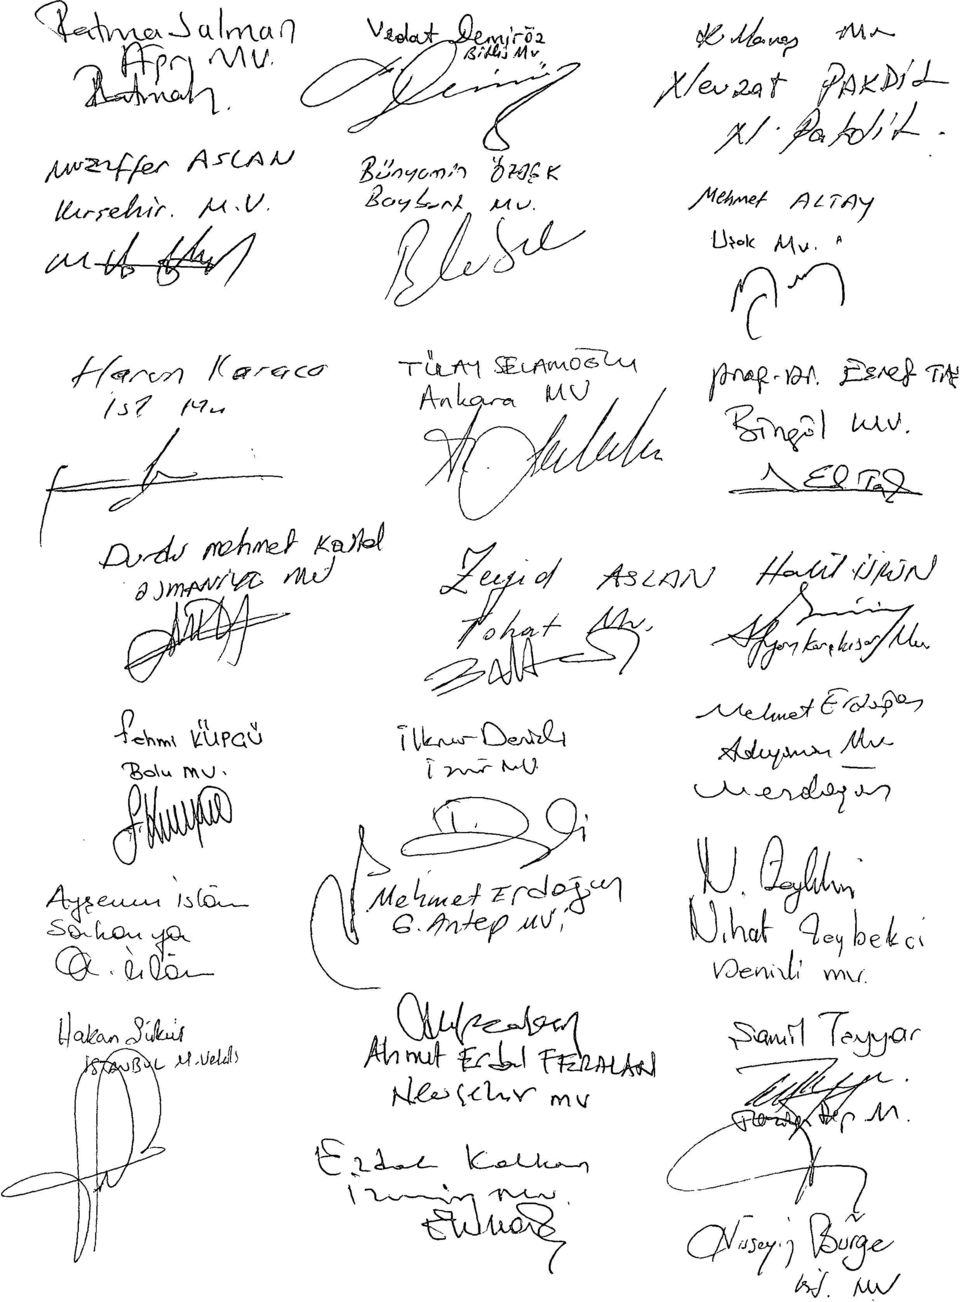 Fatma Salman
Ağrı MV.
Fatmah.
Vedat Demiröz
Bitlis Mv
K. Maraş Mv
Nevzat PAKDİL
N. Pakdil.
Muzaffer ASLAN
Kırşehir. M.V.
Bünyamin ÖZBEK
Bayburt MV.
Mehmet ALTAY
Uşak Mv.
Harun Karaca
İst Mv
TÜLAY SELAMOĞLU
Ankara MV
Prof. Dr. Eşref TAŞ
Bingöl MV.
Durdu mehmet Kastal
OSMANİYE MV
Zeyid ASLAN
Tokat Mv.
Halil ÜRÜN
Afyonkarahisar Mv
Fehmi KÜPÇÜ
Bolu MV.
İlknur Denizli
İzmir MV.
Mehmet Erdoğan
Adıyaman Mv
Merdoğan
Ayşenur İslâm
Sakarya
A. İslâm
Mehmet Erdoğan
G. Antep MV.
N. Zeybekci
Nihat Zeybekci
Denizli mv.
Hakan Şükür
İSTANBUL M. Vekili
Ahmet Erdal FERALAN
Nevşehir MV
Şamil Tayyar
Gaziantep M.
Erdal Kalkan
İzmir Mv.
Hüseyin Bürge
İst. MV